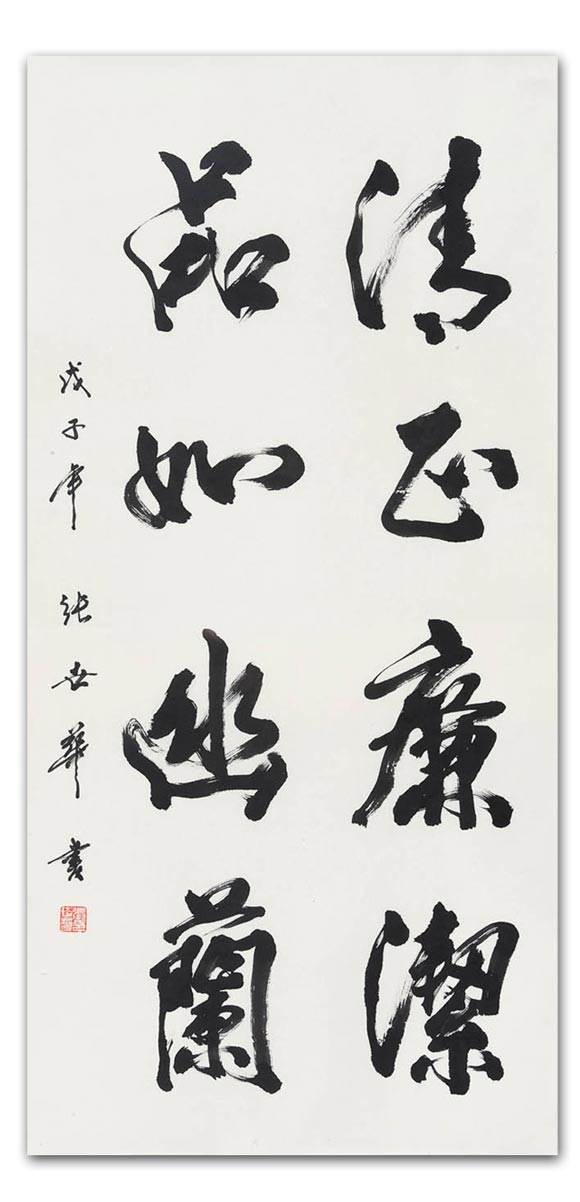 清正廉潔
品如幽蘭
戊子年 張世華書